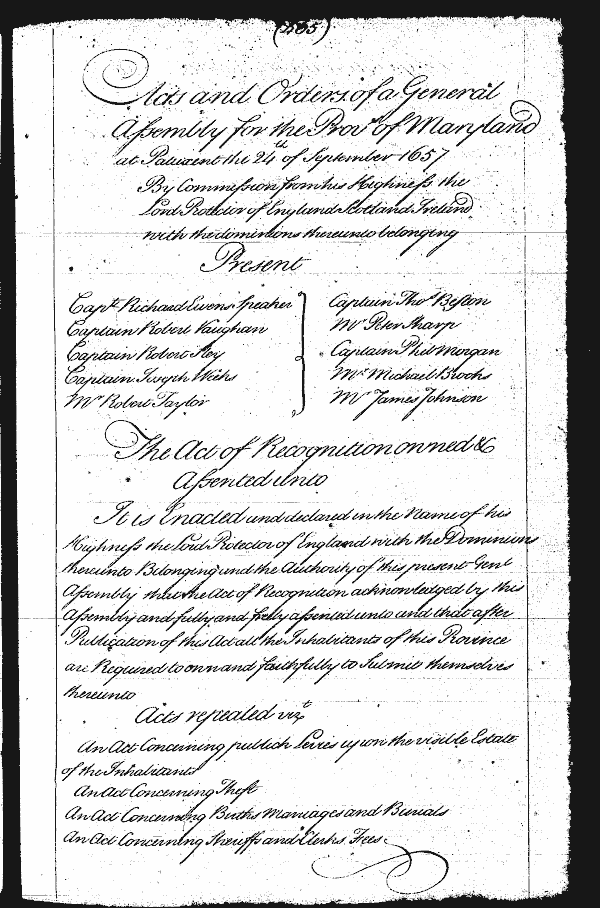 Acts and Orders of a General
Assembly for the Prov.e of Maryland
at Patuxent the 24th of September 1657
By Commission from his Highness the
Lord Protector of England Scotland Ireland
with the dominions thereunto belonging
Present
Capt. Richard Ewens Speaker
Captain Robert Vaughan
Captain Robert Sley
Captain Joseph Weeks
Mr Robert Taylor
Captain Thos Besson
Mr Peter Sharp
Captain Phil Morgan
Mr Michail Brooks
Mr James Johnson
The Act of Recognition owned &
Assented unto
It is Enacted and declared in the Name of his
Highness the Lord Protector of England with the Dominions
thereunto Belonging and the Authority of this present Genl
Assembly that the Act of Recognition acknowledged by this
Assembly and fully and freely assented unto and that after
Publication of this Act all the Inhabitants of this Province
are Required to own and faithfully to Submit themselves
thereunto
Acts repealed vizt
An Act Concerning publich Levies upon the visible Estate
of the Inhabitants
An Act Concerning Theft
An Act Concerning Births Marriages and Burials
An Act Concerning Sheriffs and Clerks Fees.